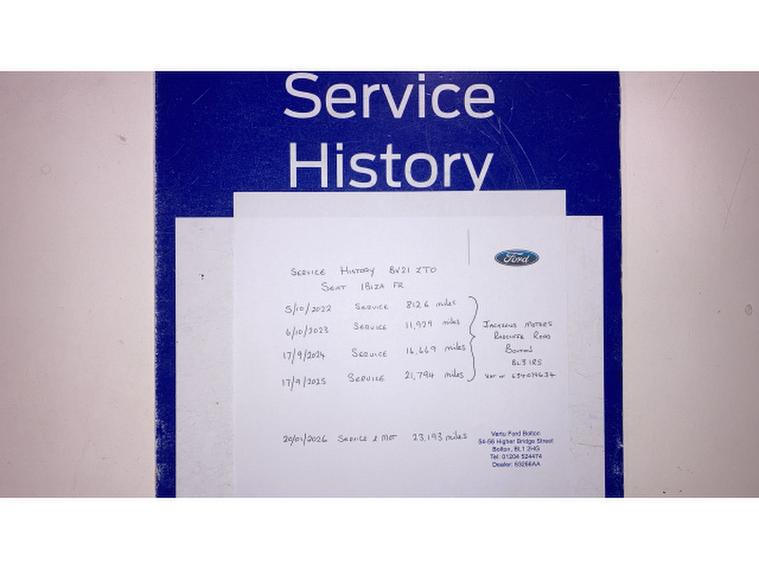 Service
History
Ford
SERVICE HISTORY BV21 ZTO
SEAT IBIZA FR
5/10/2022 SERVICE 8126 miles
6/10/2023 SERVICE 11,929 miles
17/9/2024 SERVICE 16,669 miles
17/9/2025 SERVICE 21,794 miles
JACKSONS MOTORS
RADCLIFFE ROAD
BOLTON
BL3 1RS
VAT no 654019634
20/01/2026 SERVICE & MOT 23,193 miles
Vertu Ford Bolton
54-56 Higher Bridge Street
Bolton, BL1 2HG
Tel: 01204 524474
Dealer: 63266AA